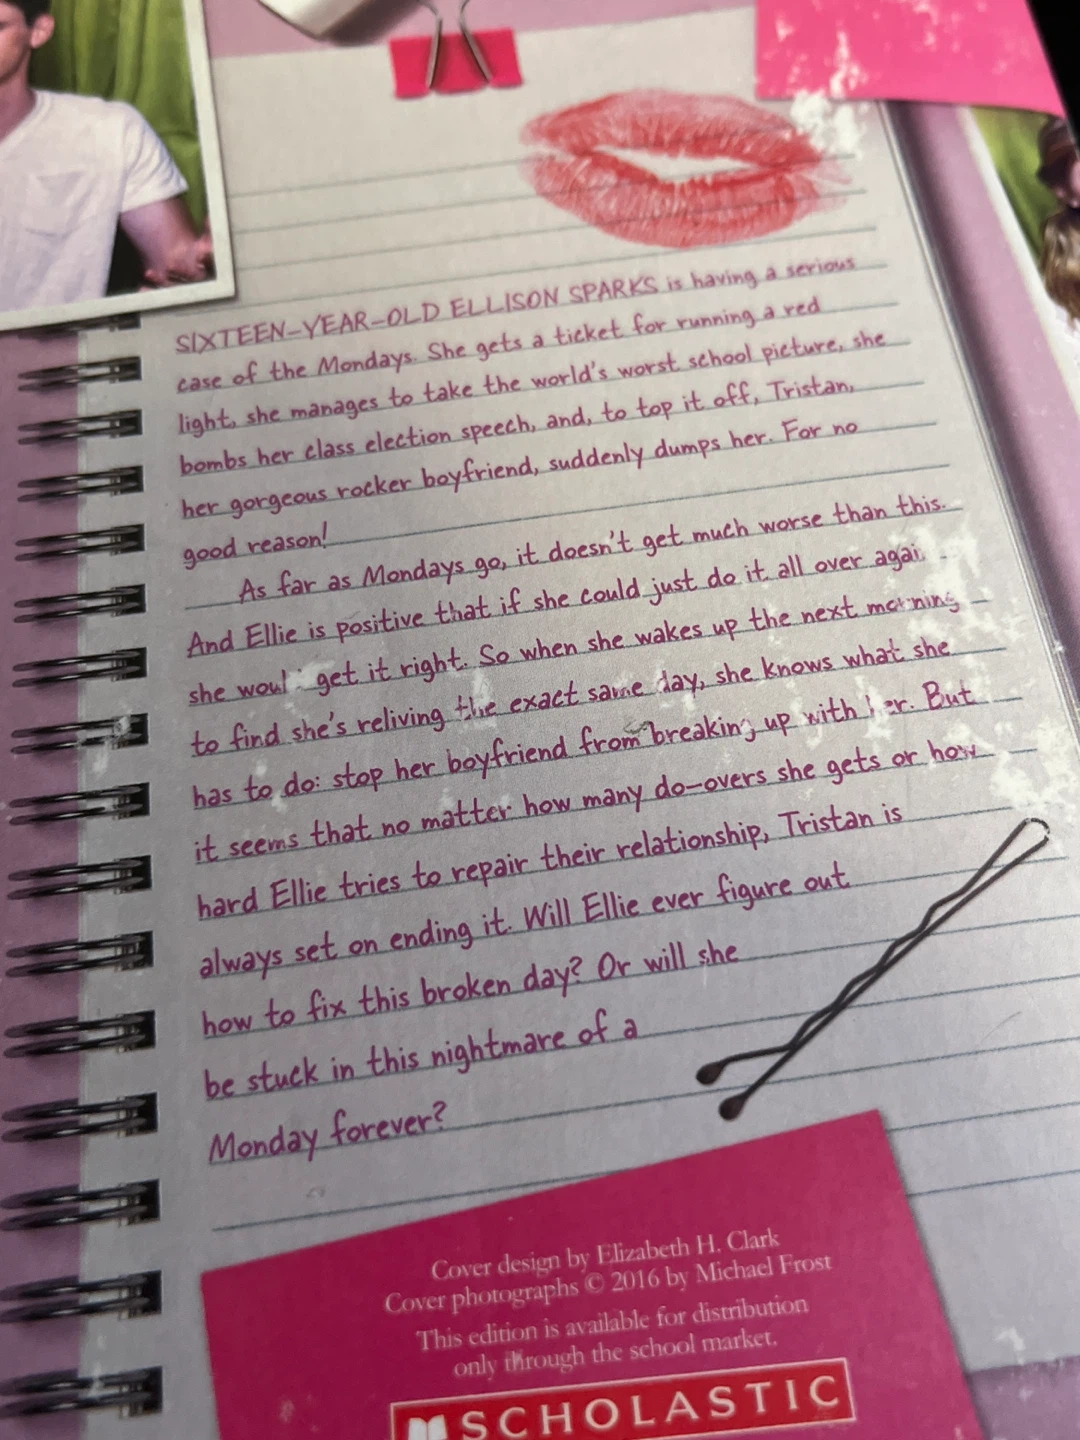 SIXTEEN-YEAR-OLD ELLISON SPARKS is having a serious
case of the Mondays. She gets a ticket for running a red
light, she manages to take the world's worst school picture, she
bombs her class election speech, and, to top it off, Tristan,
her gorgeous rocker boyfriend, suddenly dumps her. For no
good reason!
As far as Mondays go, it doesn't get much worse than this.
And Ellie is positive that if she could just do it all over agai
she woul get it right. So when she wakes up the next morning
to find she's reliving the exact same day, she knows what she
has to do: stop her boyfriend from breaking up with her. But
it seems that no matter how many do-overs she gets or how
hard Ellie tries to repair their relationship, Tristan is
always set on ending it. Will Ellie ever figure out
how to fix this broken day? Or will she
be stuck in this nightmare of a
Monday forever?
Cover design by Elizabeth H. Clark
Cover photographs © 2016 by Michael Frost
This edition is available for distribution
only through the school market.
SCHOLASTIC